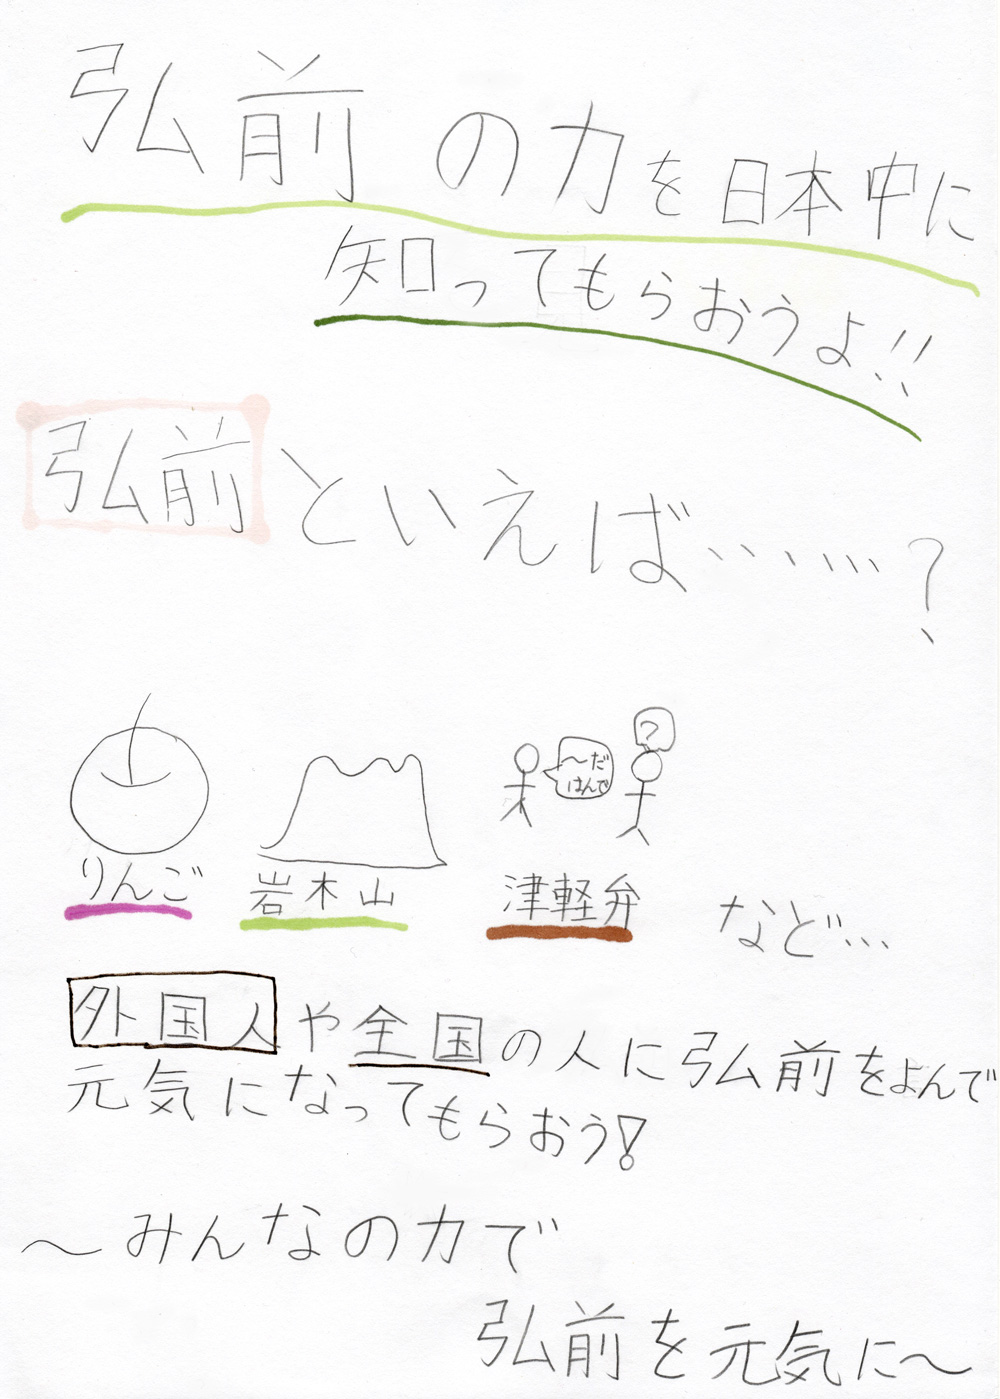 弘前の力を日本中に
知ってもらおうよ!!
弘前といえば……?
?
～だ
はんで
りんご 岩木山 津軽弁 など…
外国人や全国の人に弘前をよんで
元気になってもらおう!
～みんなの力で
弘前を元気に～